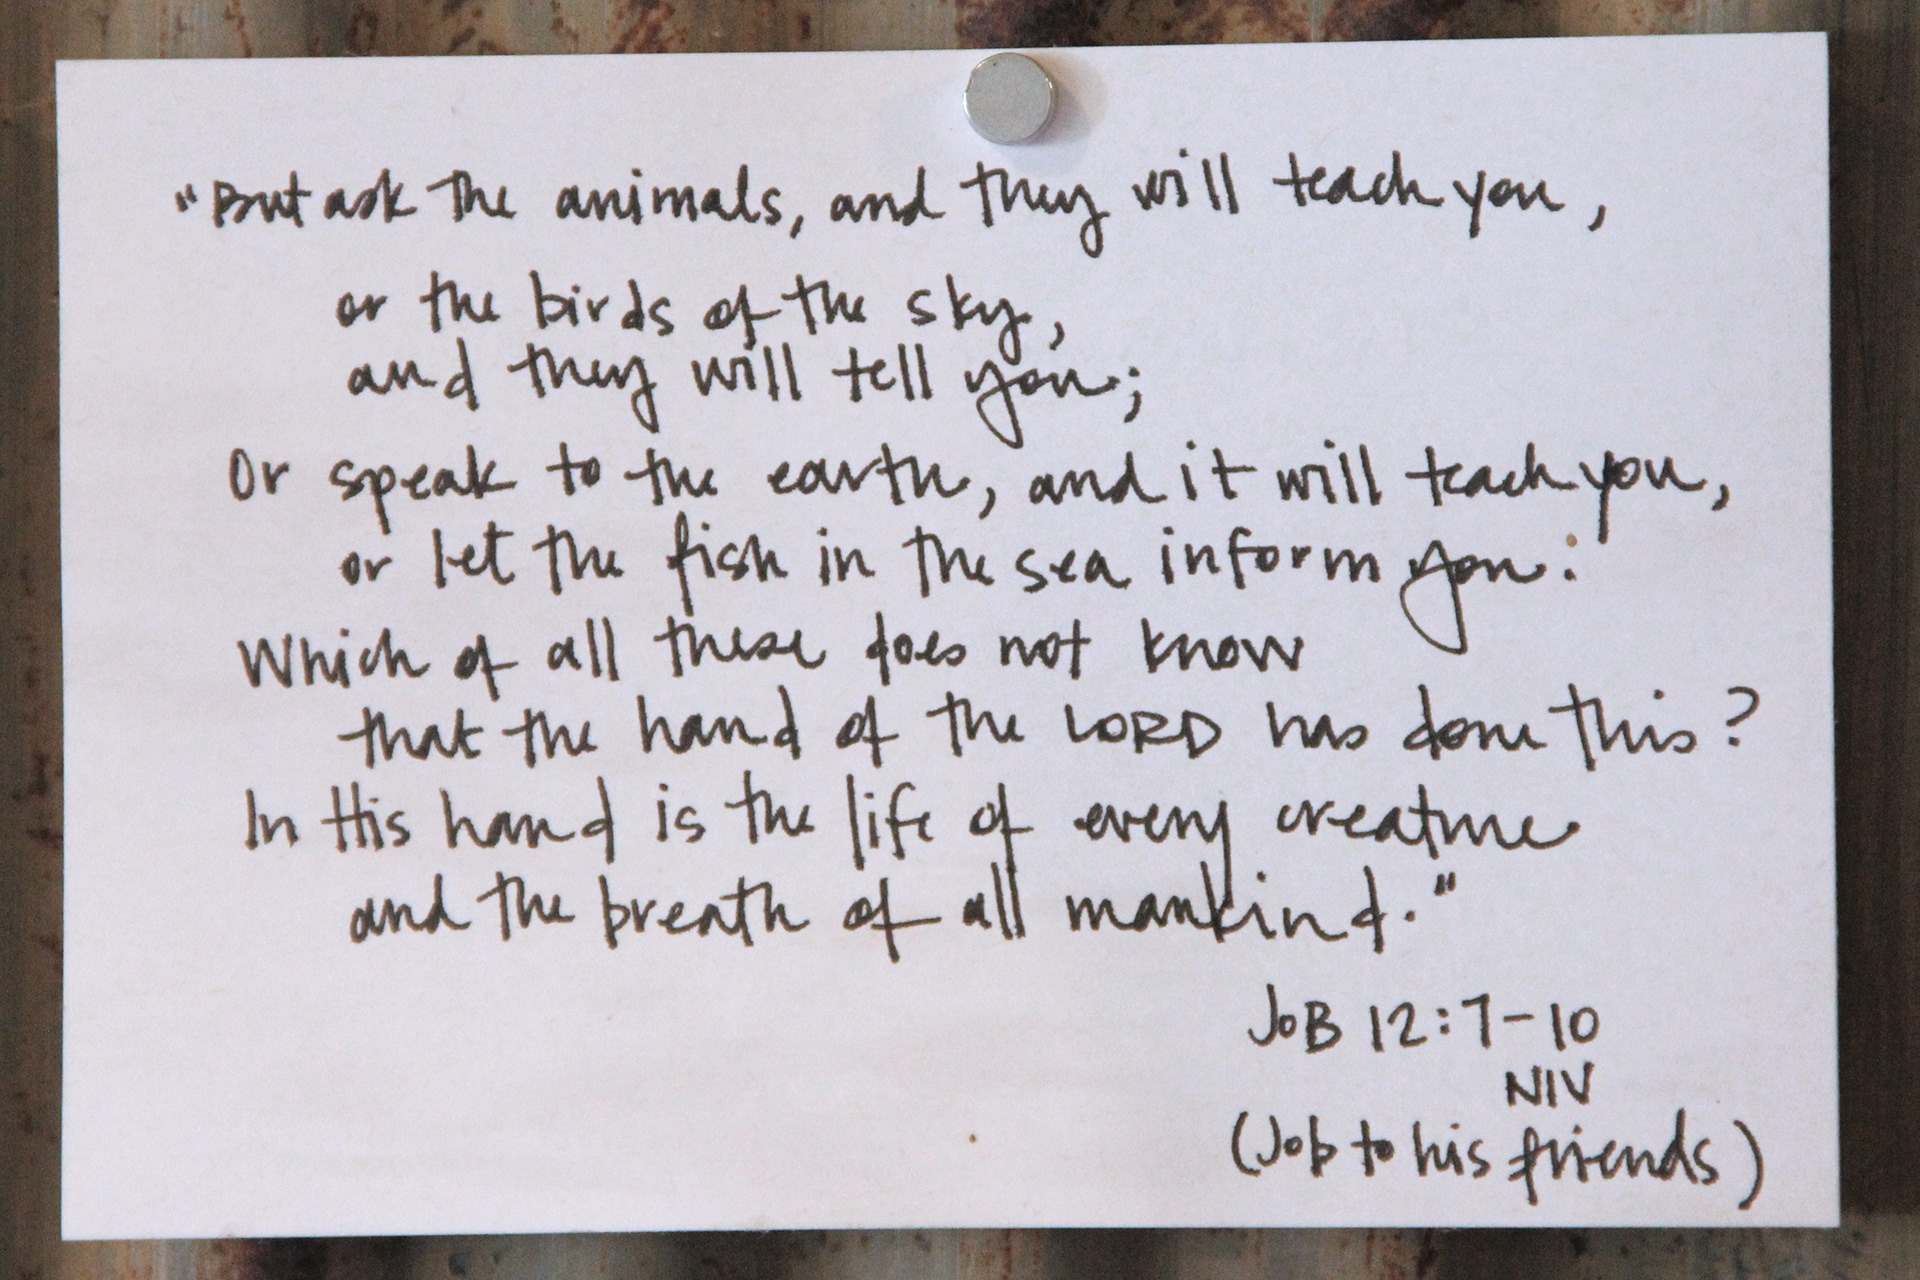 "But ask the animals, and they will teach you,
or the birds of the sky,
and they will tell you;
Or speak to the earth, and it will teach you,
or let the fish in the sea inform you:
Which of all these does not know
that the hand of the LORD has done this?
In His hand is the life of every creature
and the breath of all mankind."
JoB 12:7-10
NIV
(Job to his friends)